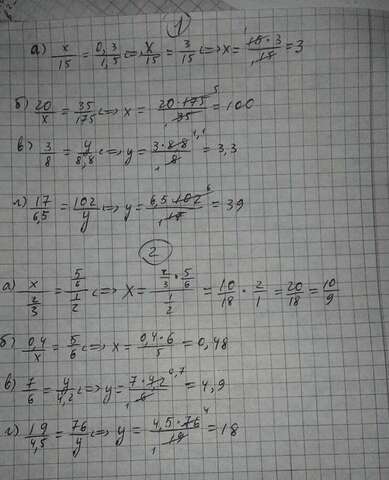 1
а) x/15 = 0,3/1,5 <=> x/15 = 3/15 <=> x = 15·3/15 = 3
б) 20/x = 35/175 <=> x = 20·175/35 = 100
в) 3/8 = y/8,8 <=> y = 3·8,8/8 = 3,3
г) 17/6,5 = 102/y <=> y = 6,5·102/17 = 39
2
а) x/(2/3) = (5/6)/(1/2) <=> x = (2/3·5/6)/(1/2) = 10/18 · 2/1 = 20/18 = 10/9
б) 0,4/x = 5/6 <=> x = 0,4·6/5 = 0,48
в) 7/6 = y/4,2 <=> y = 7·4,2/6 = 4,9
г) 19/4,5 = 76/y <=> y = 4,5·76/19 = 18